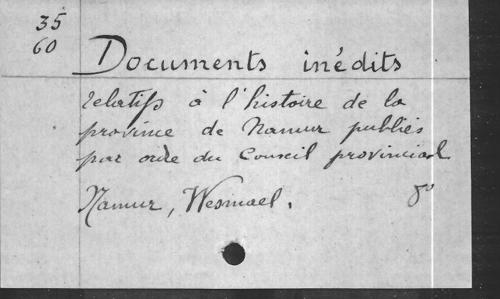 35
60
Documents inédits
relatifs à l'histoire de la
province de Namur publiés
par ordre du Conseil provincial
Namur, Wesmael. 8°